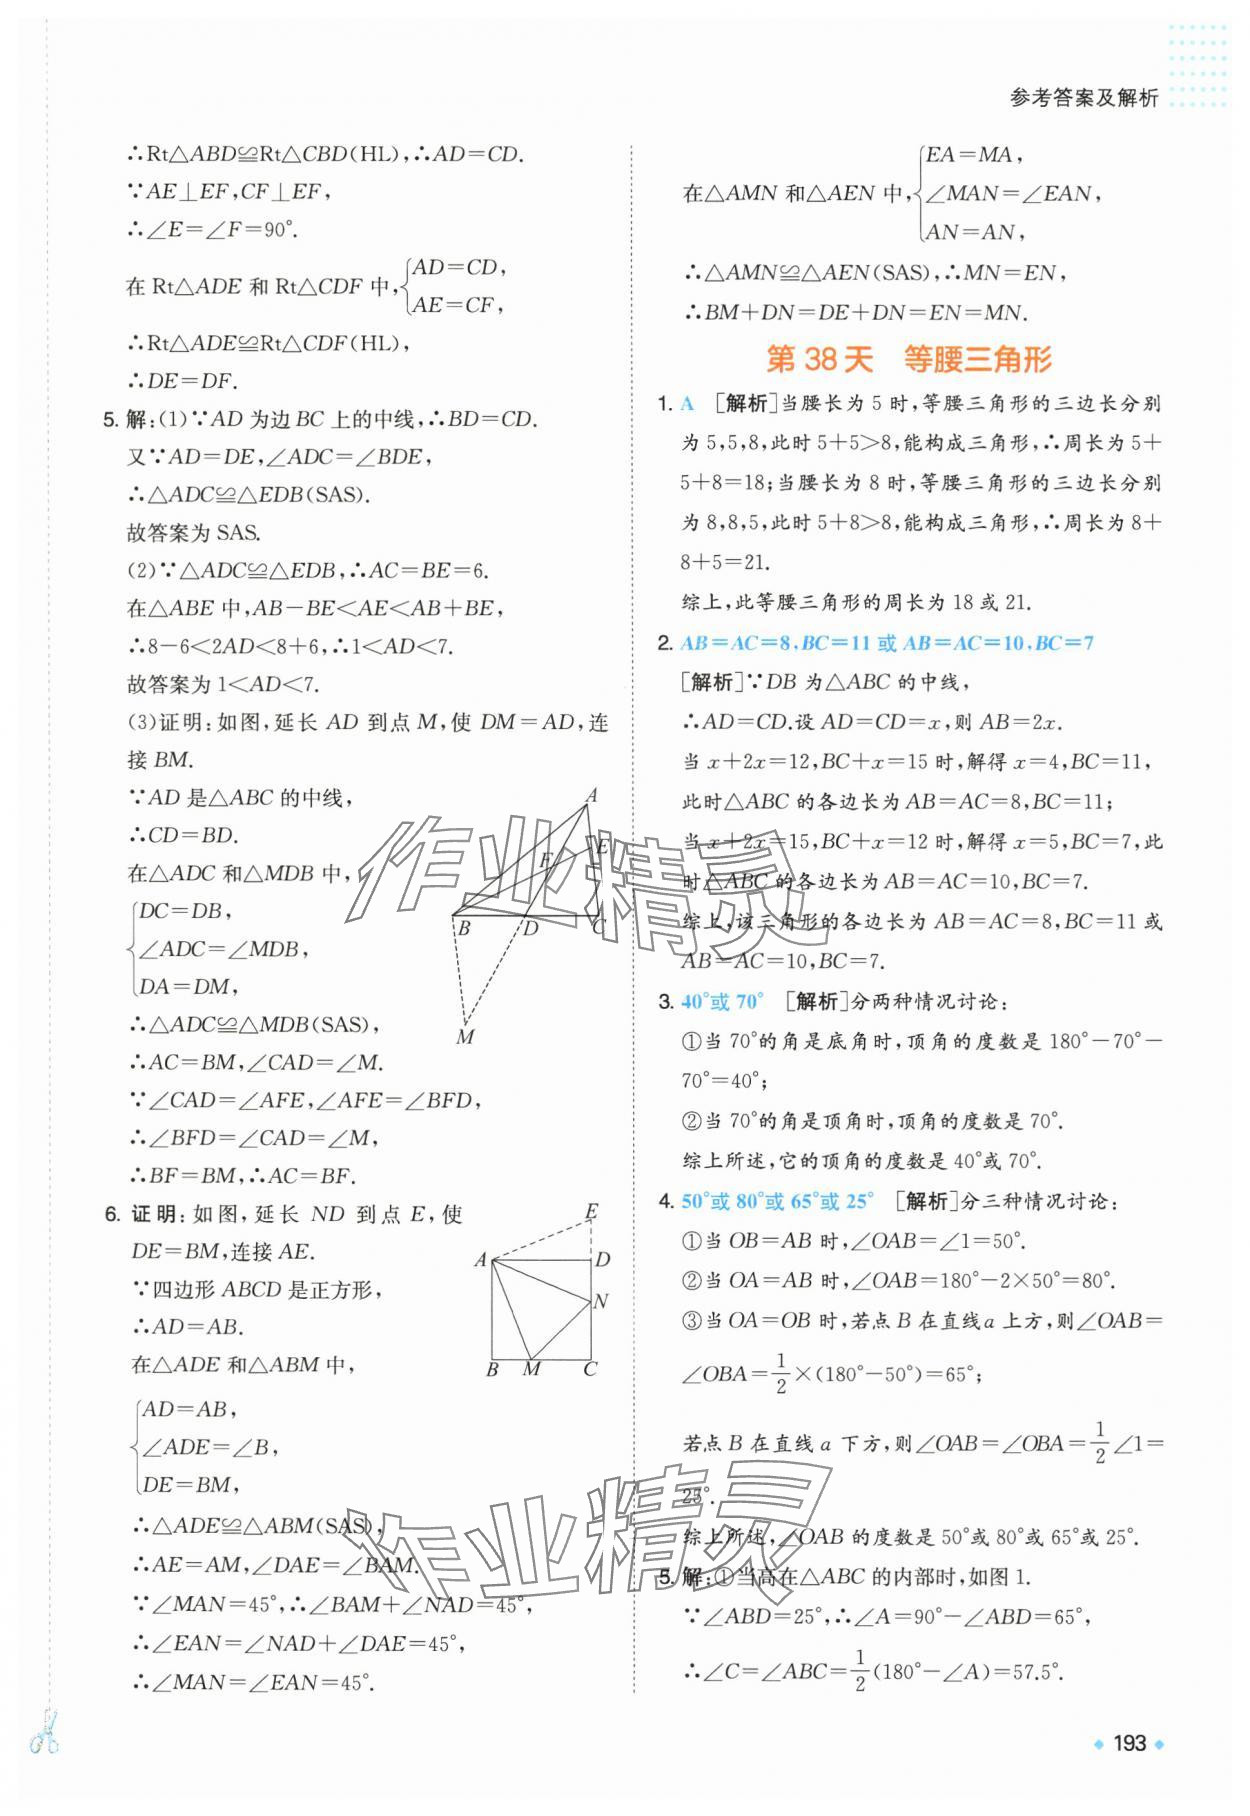 参考答案及解析
∴Rt△ABD≌Rt△CBD(HL),∴AD=CD.
∵AE⊥EF,CF⊥EF,
∴∠E=∠F=90°.
在 Rt△ADE 和 Rt△CDF 中,{AD=CD,
AE=CF,
∴Rt△ADE≌Rt△CDF(HL),
∴DE=DF.
5. 解:(1)∵AD 为边 BC 上的中线,∴BD=CD.
又∵AD=DE,∠ADC=∠BDE,
∴△ADC≌△EDB(SAS).
故答案为 SAS.
(2)∵△ADC≌△EDB,∴AC=BE=6.
在△ABE 中,AB-BE<AE<AB+BE,
∴8-6<2AD<8+6,∴1<AD<7.
故答案为 1<AD<7.
(3)证明:如图,延长 AD 到点 M,使 DM=AD,连
接 BM.
∵AD 是△ABC 的中线,
∴CD=BD.
在△ADC 和△MDB 中,
{DC=DB,
∠ADC=∠MDB,
DA=DM,
∴△ADC≌△MDB(SAS),
∴AC=BM,∠CAD=∠M.
∵∠CAD=∠AFE,∠AFE=∠BFD,
∴∠BFD=∠CAD=∠M,
∴BF=BM,∴AC=BF.
A
E
F
B
D
C
M
6. 证明:如图,延长 ND 到点 E,使
DE=BM,连接 AE.
∵四边形 ABCD 是正方形,
∴AD=AB.
在△ADE 和△ABM 中,
{AD=AB,
∠ADE=∠B,
DE=BM,
∴△ADE≌△ABM(SAS),
∴AE=AM,∠DAE=∠BAM.
∵∠MAN=45°,∴∠BAM+∠NAD=45°,
∴∠EAN=∠NAD+∠DAE=45°,
∴∠MAN=∠EAN=45°.
E
A
D
N
B
M
C
在△AMN 和△AEN 中,{EA=MA,
∠MAN=∠EAN,
AN=AN,
∴△AMN≌△AEN(SAS),∴MN=EN,
∴BM+DN=DE+DN=EN=MN.
第 38 天 等腰三角形
1. A [解析]当腰长为 5 时,等腰三角形的三边长分别
为 5,5,8,此时 5+5>8,能构成三角形,∴周长为 5+
5+8=18;当腰长为 8 时,等腰三角形的三边长分别
为 8,8,5,此时 5+8>8,能构成三角形,∴周长为 8+
8+5=21.
综上,此等腰三角形的周长为 18 或 21.
2. AB=AC=8,BC=11 或 AB=AC=10,BC=7
[解析]∵DB 为△ABC 的中线,
∴AD=CD.设 AD=CD=x,则 AB=2x.
当 x+2x=12,BC+x=15 时,解得 x=4,BC=11,
此时△ABC 的各边长为 AB=AC=8,BC=11;
当 x+2x=15,BC+x=12 时,解得 x=5,BC=7,此
时△ABC 的各边长为 AB=AC=10,BC=7.
综上,该三角形的各边长为 AB=AC=8,BC=11 或
AB=AC=10,BC=7.
3. 40°或 70° [解析]分两种情况讨论:
①当 70°的角是底角时,顶角的度数是 180°-70°-
70°=40°;
②当 70°的角是顶角时,顶角的度数是 70°.
综上所述,它的顶角的度数是 40°或 70°.
4. 50°或 80°或 65°或 25° [解析]分三种情况讨论:
①当 OB=AB 时,∠OAB=∠1=50°.
②当 OA=AB 时,∠OAB=180°-2×50°=80°.
③当 OA=OB 时,若点 B 在直线 a 上方,则∠OAB=
∠OBA=1/2×(180°-50°)=65°;
若点 B 在直线 a 下方,则∠OAB=∠OBA=1/2∠1=
25°.
综上所述,∠OAB 的度数是 50°或 80°或 65°或 25°.
5. 解:①当高在△ABC 的内部时,如图 1.
∵∠ABD=25°,∴∠A=90°-∠ABD=65°,
∴∠C=∠ABC=1/2(180°-∠A)=57.5°.
作业精灵
作业精灵
193